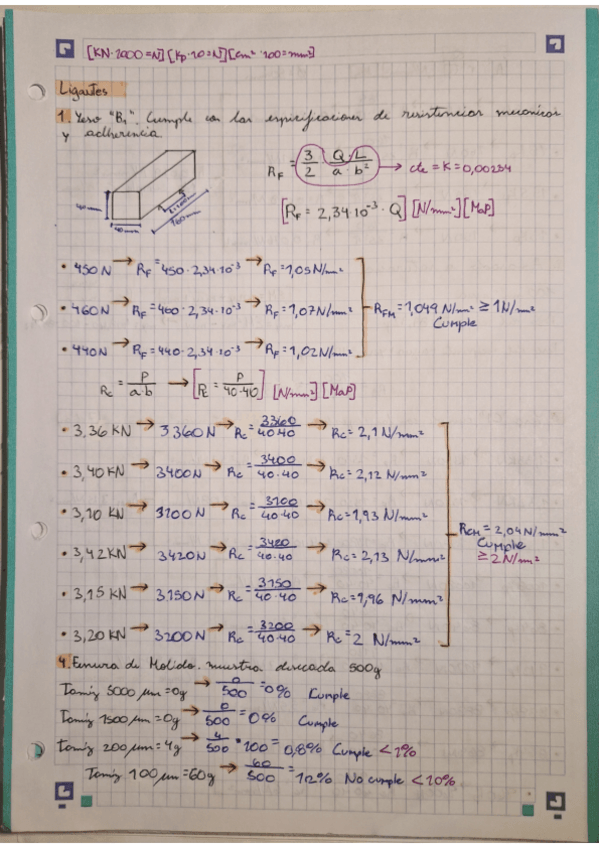 [KN·1000=N][Kp·10=N][cm²·100=mm²]
Ligantes
1. Yeso "B₁". Cumple con las especificaciones de resistencias mecanicas
y adherencia
R_F = 3/2 · Q·L/a·b² → cte = K = 0,00234
[R_F = 2,34·10⁻³ · Q] [N/mm²][MaP]
40mm 40mm L=100mm 160mm
• 450N → R_F = 450·2,34·10⁻³ → R_F = 1,05N/mm²
• 460N → R_F = 460·2,34·10⁻³ → R_F = 1,07N/mm² R_FM = 1,049 N/mm² ≥ 1N/mm²
Cumple
• 440N → R_F = 440·2,34·10⁻³ → R_F = 1,02N/mm²
R_C = P/a·b → [R_C = P/40·40] [N/mm²][MaP]
• 3,36 KN → 3360N → R_C = 3360/40·40 → R_C = 2,1 N/mm²
• 3,40 KN → 3400N → R_C = 3400/40·40 → R_C = 2,12 N/mm²
• 3,10 KN → 3100N → R_C = 3100/40·40 → R_C = 1,93 N/mm² R_CM = 2,04 N/mm²
Cumple
≥ 2 N/mm²
• 3,42KN → 3420N → R_C = 3420/40·40 → R_C = 2,13 N/mm²
• 3,15 KN → 3.150N → R_C = 3150/40·40 → R_C = 1,96 N/mm²
• 3,20 KN → 3200N → R_C = 3200/40·40 → R_C = 2 N/mm²
4. Finura de Molido. muestra disecada 500g
Tamiz 5000 µm = 0g → 0/500 = 0% Cumple
Tamiz 1500 µm = 0g → 0/500 = 0% Cumple
Tamiz 200 µm = 4g → 4/500 · 100 = 0,8% Cumple < 1%
Tamiz 100 µm = 60g → 60/500 = 12% No cumple < 10%